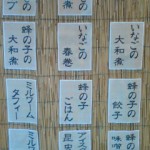 いなごの
大和煮
いなごの
春巻
蜂の子の
大和煮
蜂の子の
餃子
蜂の子
ごはん
ミルワーム
タフィー
蜂の
味噌
昆虫
ミルワ